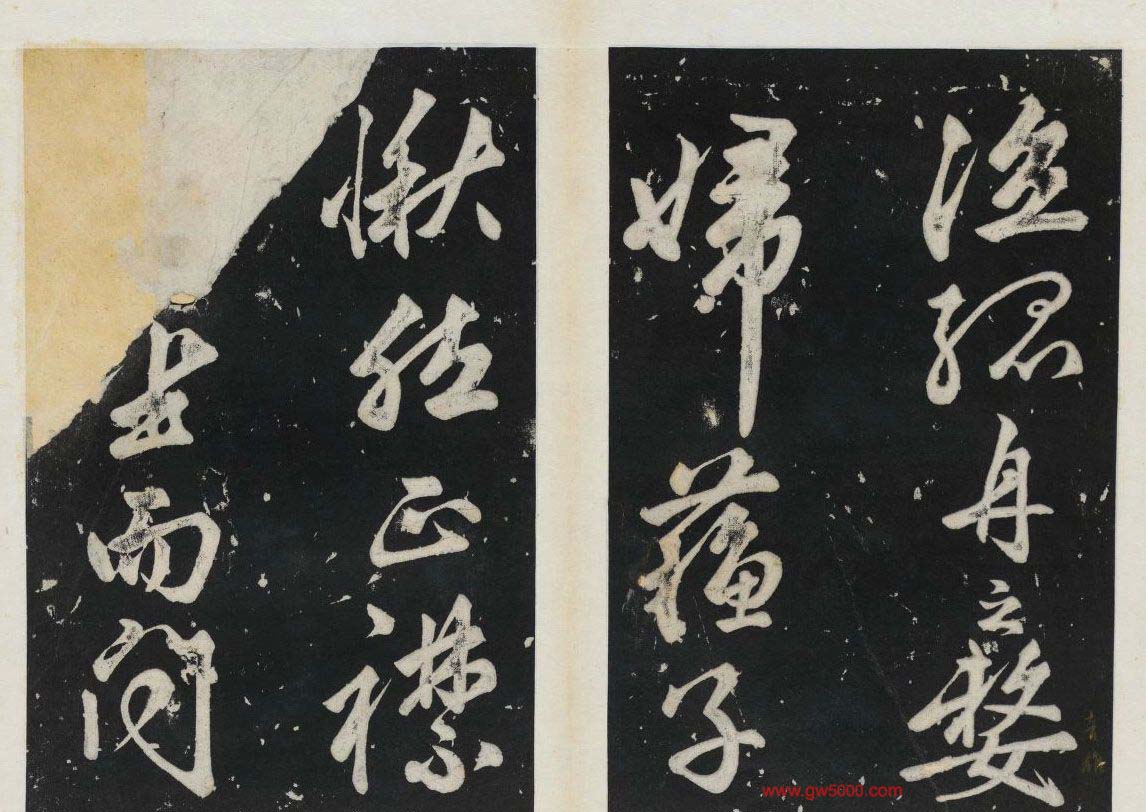 泣孤舟之嫠
婦蘇子
愀然正襟
坐而問
www.gw5000.com